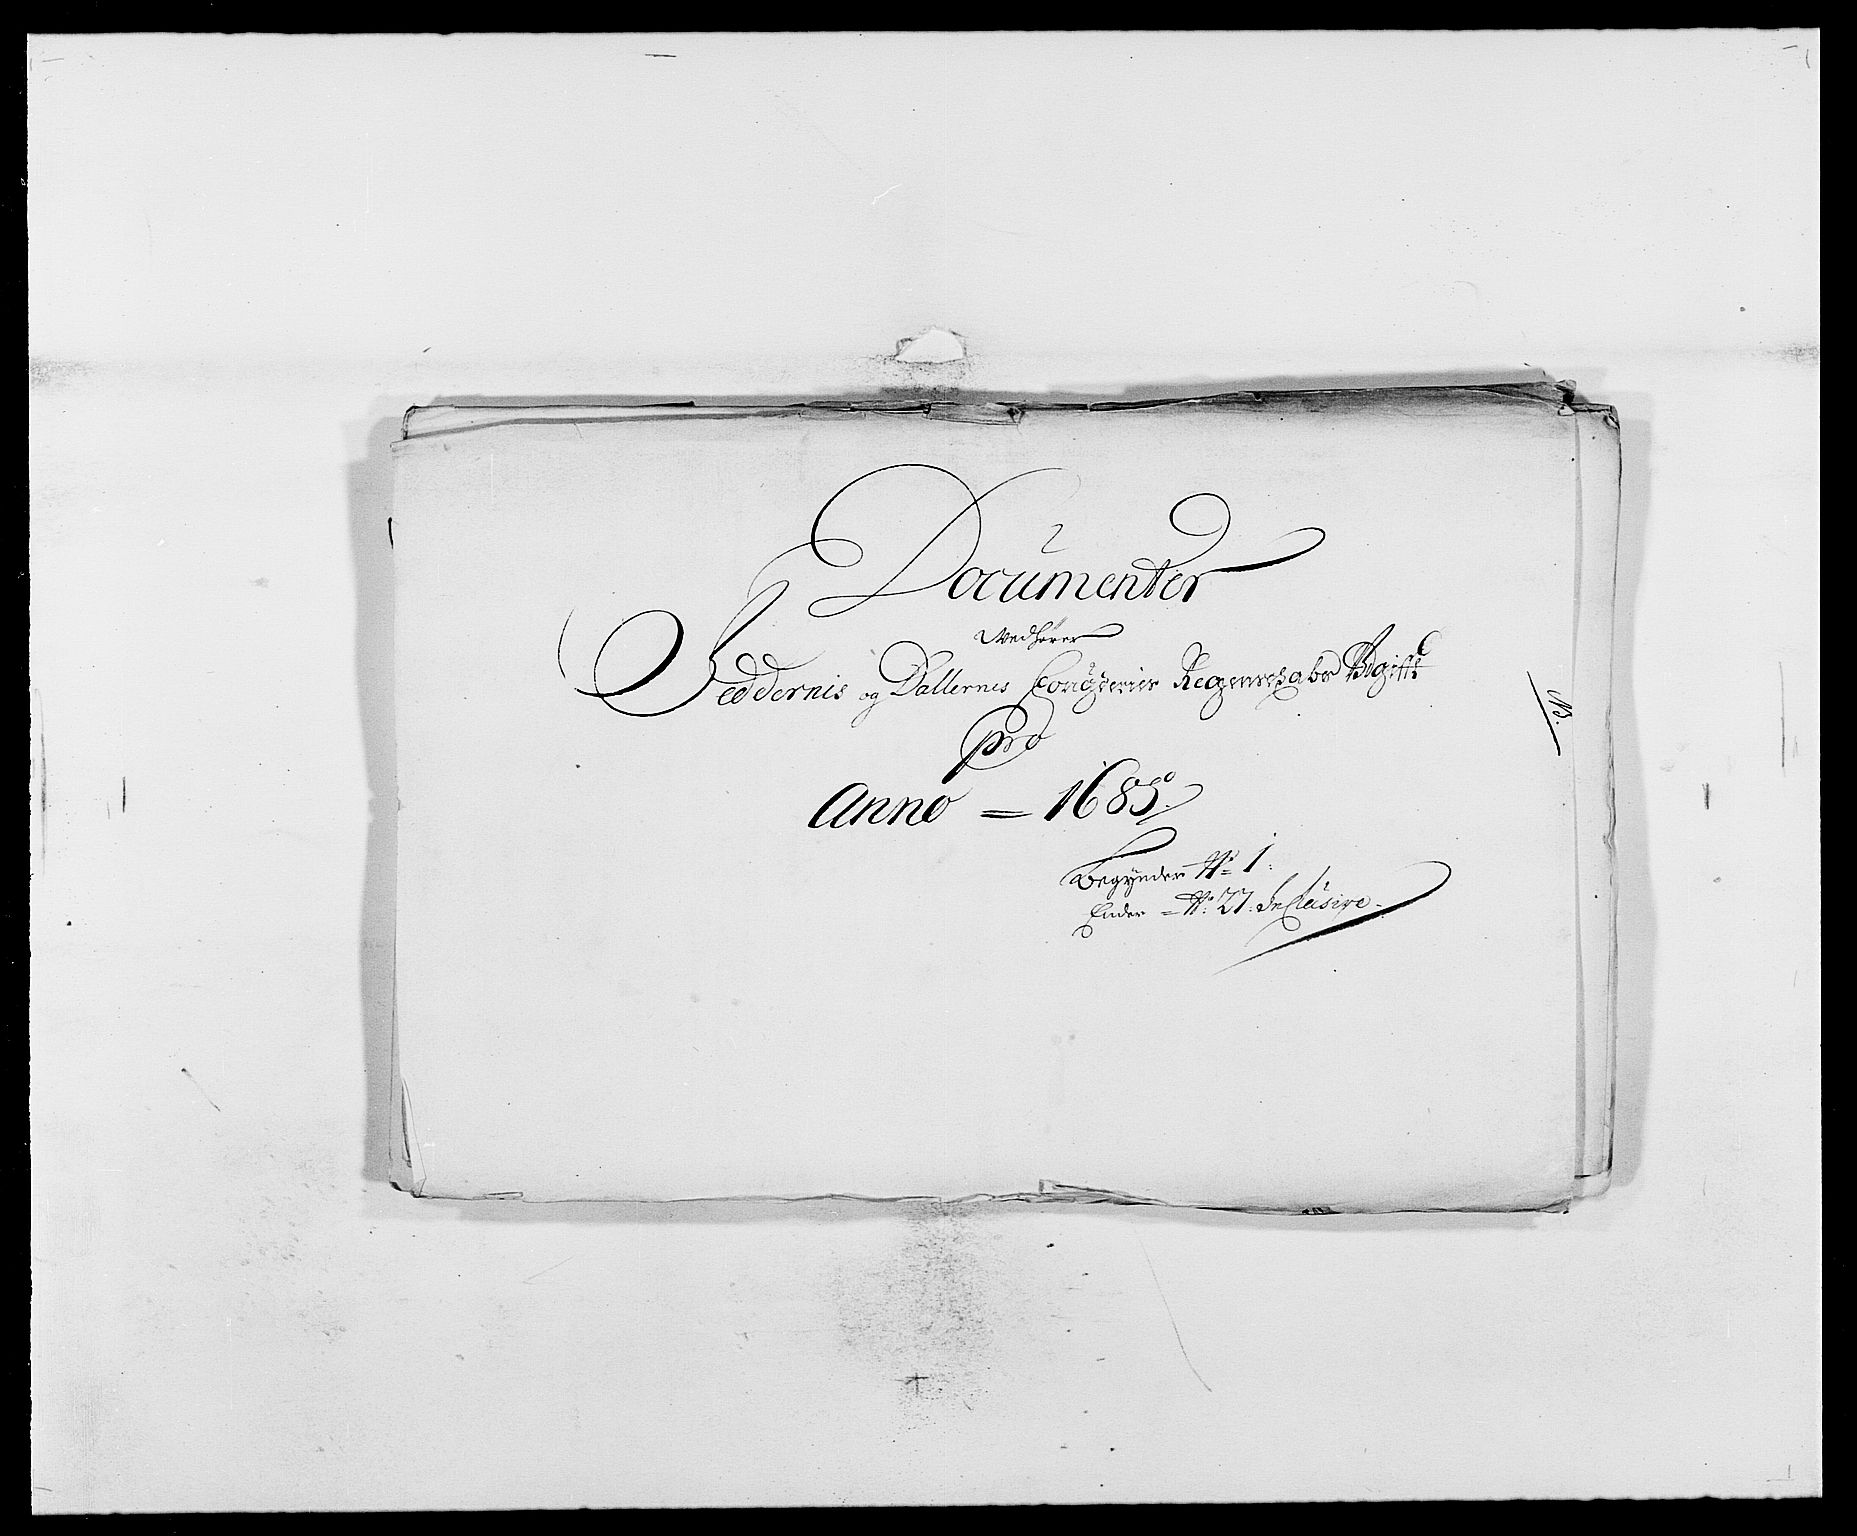 Documenter
Wedhører
Jedderns og Dallernes Fougderier Regenschabs Udgifft
pro
Anno = 1685.
Begynder N⁰ 1.
Ender = N⁰ 27. Inclusive.
N3.